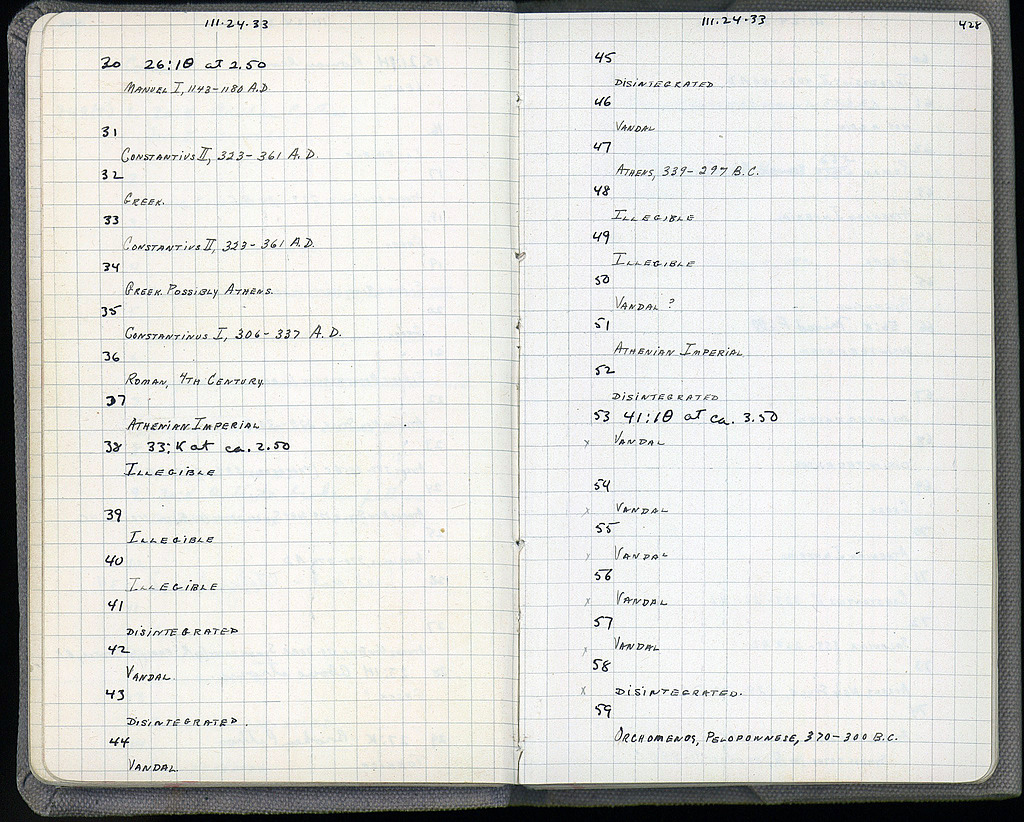 111.24.33
30 26:1Θ at 2.50
MANUEL I, 1143-1180 A.D.
31
CONSTANTIUS II, 323-361 A.D.
32
GREEK.
33
CONSTANTIUS II, 323-361 A.D.
34
GREEK. POSSIBLY ATHENS.
35
CONSTANTINUS I, 306-337 A.D.
36
ROMAN, 4TH CENTURY
37
ATHENIAN IMPERIAL
38 33:K at ca. 2.50
ILLEGIBLE
39
ILLEGIBLE
40
ILLEGIBLE
41
DISINTEGRATED
42
VANDAL.
43
DISINTEGRATED.
44
VANDAL.
111.24.33
428
45
DISINTEGRATED
46
VANDAL
47
ATHENS, 339-297 B.C.
48
ILLEGIBLE
49
ILLEGIBLE
50
VANDAL ?
51
ATHENIAN IMPERIAL
52
DISINTEGRATED
53 41:1Θ at ca. 3.50
x VANDAL
54
x VANDAL
55
x VANDAL
56
x VANDAL
57
x VANDAL
58
x DISINTEGRATED.
59
ORCHOMENOS, PELOPONNESE, 370-300 B.C.